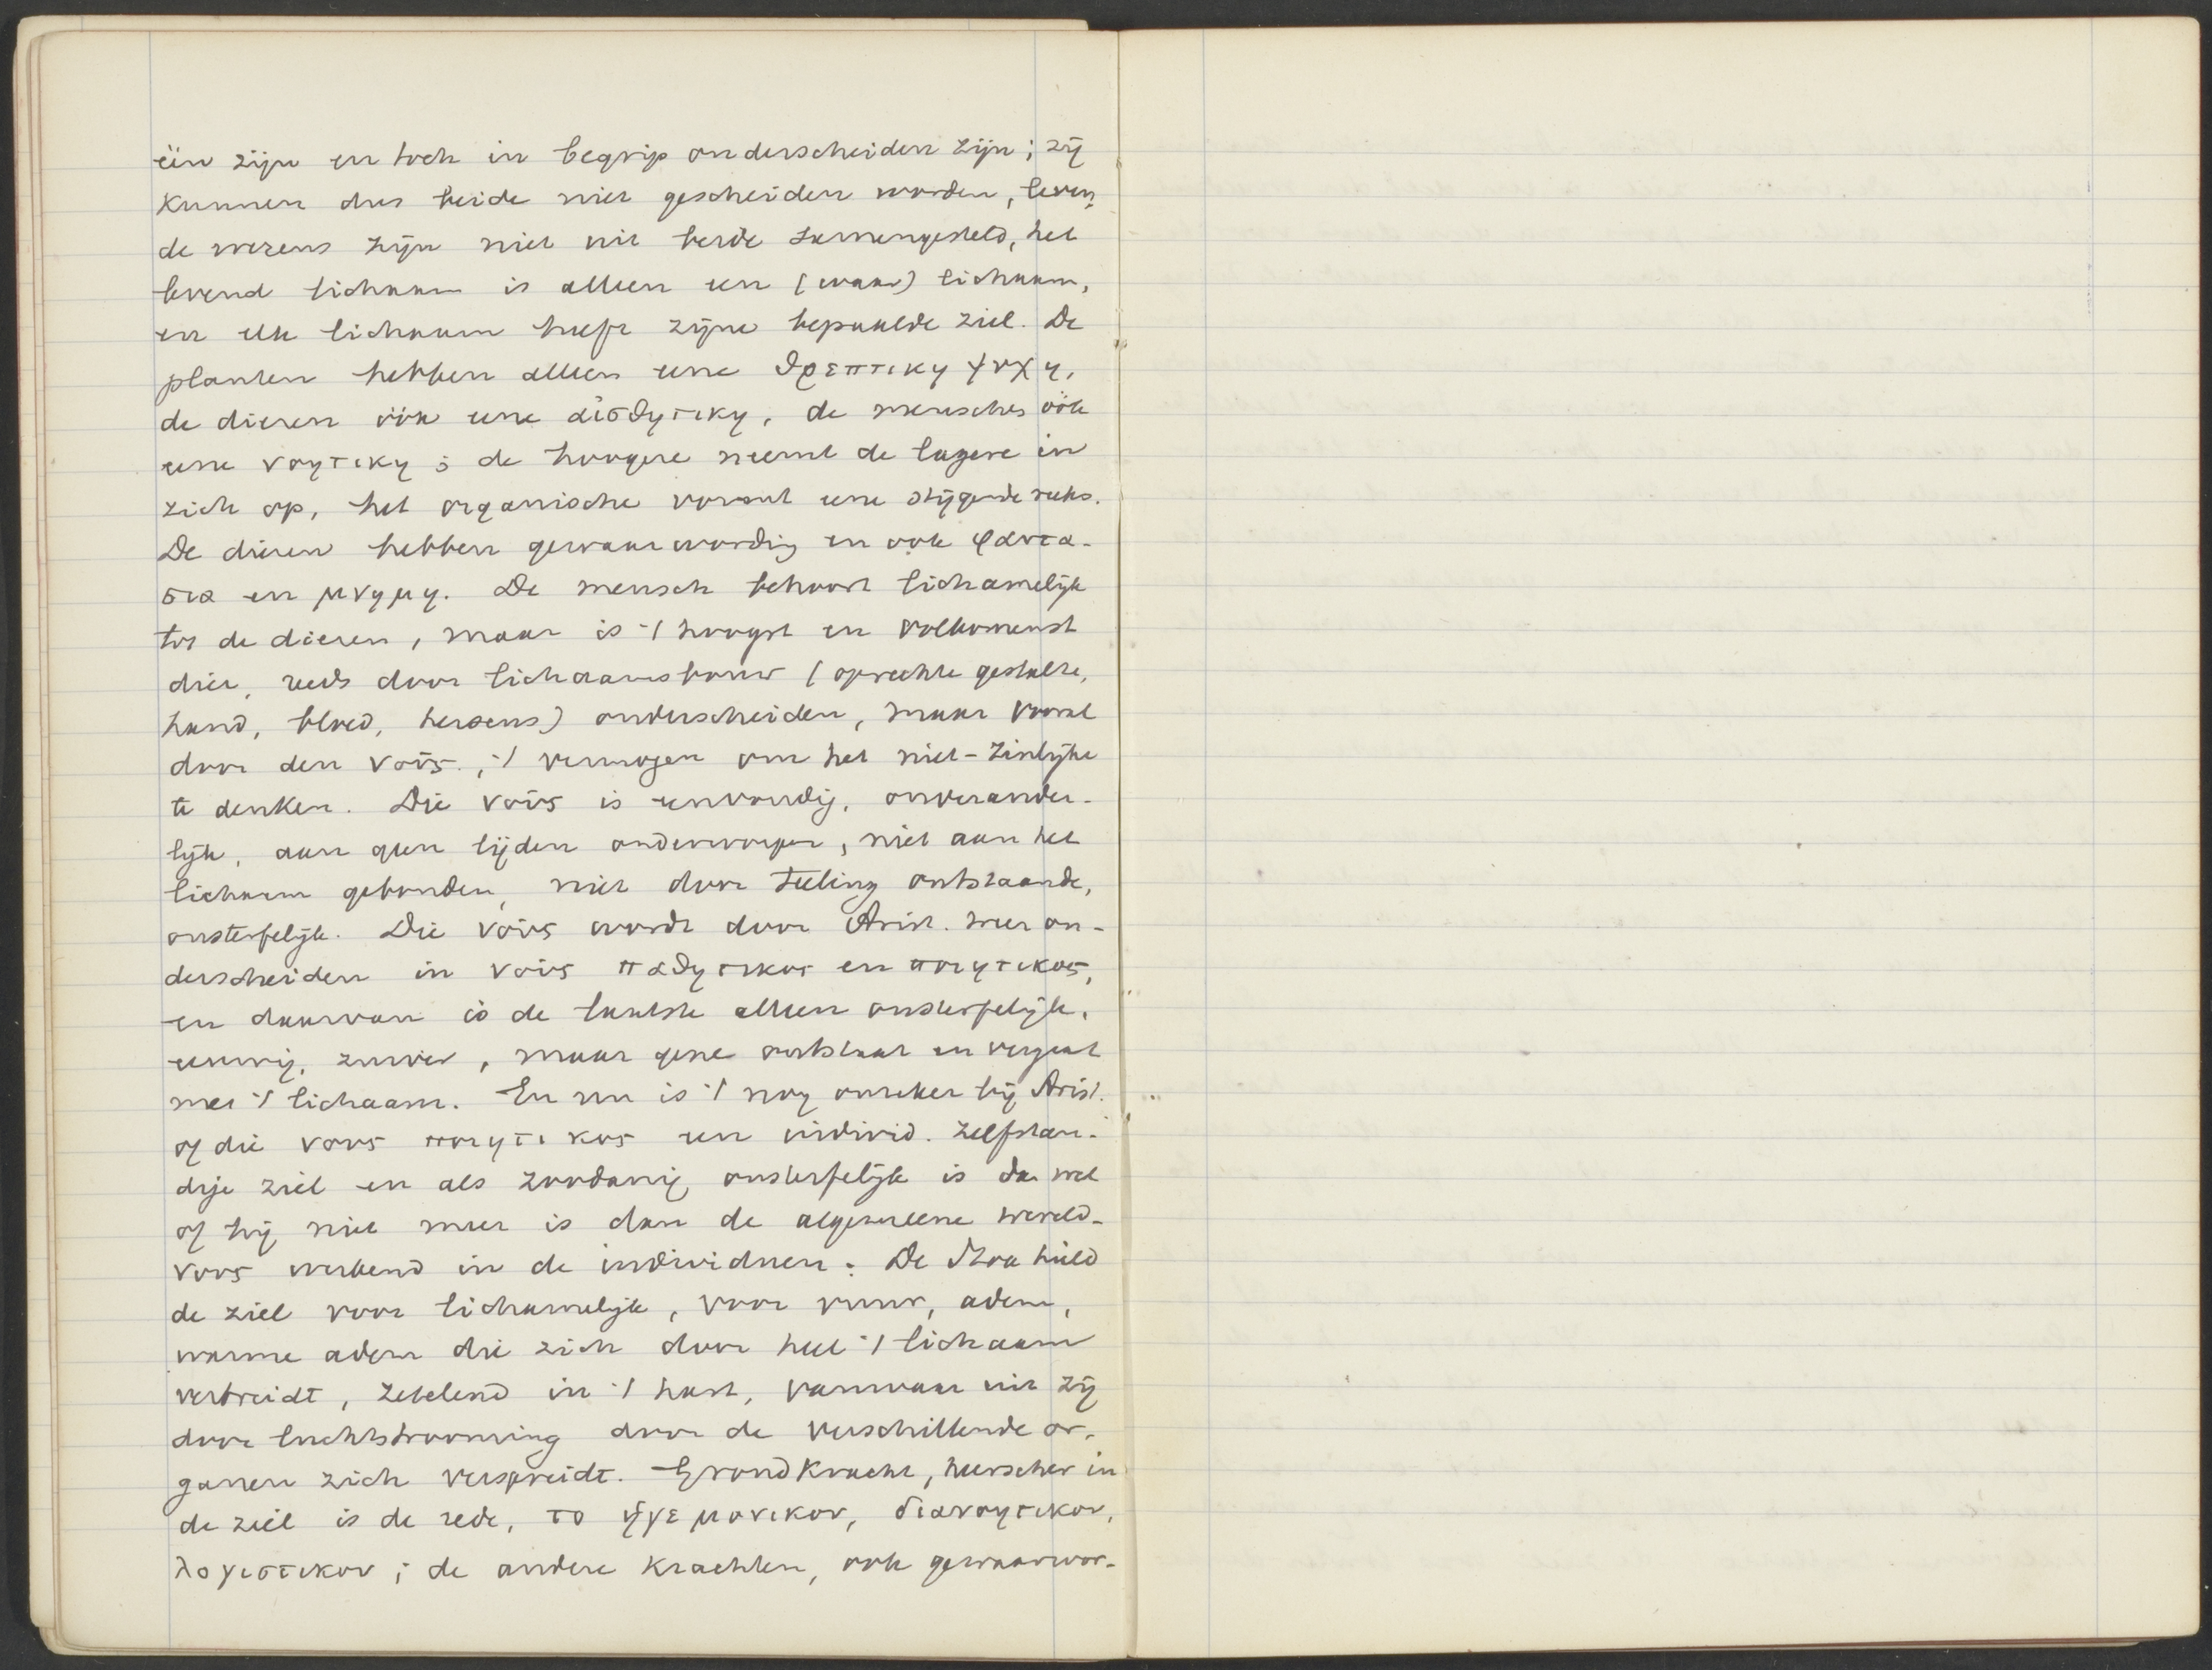 één zijn en toch in begrip onderscheiden zijn; zij
kunnen dus beide niet gescheiden worden, leven-
de wezens zijn niet uit beide samengesteld, het
levend lichaam is alleen een (waar) lichaam,
en elk lichaam heeft zijne bepaalde ziel. De
planten hebben alleen eene θρεπτικη ψυχη,
de dieren óók eene αἰσθητικη, de menschen óók
eene νοητικη; de hoogere neemt de lagere in
zich op, het organische vormt eene stijgende reeks.
De dieren hebben gewaarwording en ook φαντα-
σια en μνημη. De mensch behoort lichamelijk
tot de dieren, maar is 't hoogst en volkomenst
dier, reeds door lichaamsbouw (oprechte gestalte,
hand, bloed, hersens) onderscheiden, maar vooral
door den νοῦς, 't vermogen om het niet-zinlijke
te denken. Die νοῦς is eenvoudig, onverander-
lijk, aan geen lijden onderworpen, niet aan het
lichaam gebonden, niet door teeling ontstaande,
onsterfelijk. Die νοῦς wordt door Arist. weer on-
derscheiden in νοῦς παθητικος en ποιητικος,
en daarvan is de laatste alleen onsterfelijk,
eeuwig, zuiver, maar gene ontstaat en vergaat
met 't lichaam. En nu is 't nog onzeker bij Arist.
of die νους ποιητικος een individ. zelfstan-
dige ziel en als zoodanig onsterfelijk is dan wel
of hij niet meer is dan de algemeene wereld-
νους werkend in de individuen. De Stoa hield
de ziel voor lichamelijk, voor vuur, adem,
warme adem die zich door heel 't lichaam
verbreidt, zetelend in 't hart, vanwaar uit zij
door luchtstrooming door de verschillende or-
ganen zich verspreidt. Grondkracht, heerscher in
de ziel is de rede, το ἡγεμονικον, διανοητικον,
λογιστικον; de andere krachten, ook gewaarwor-